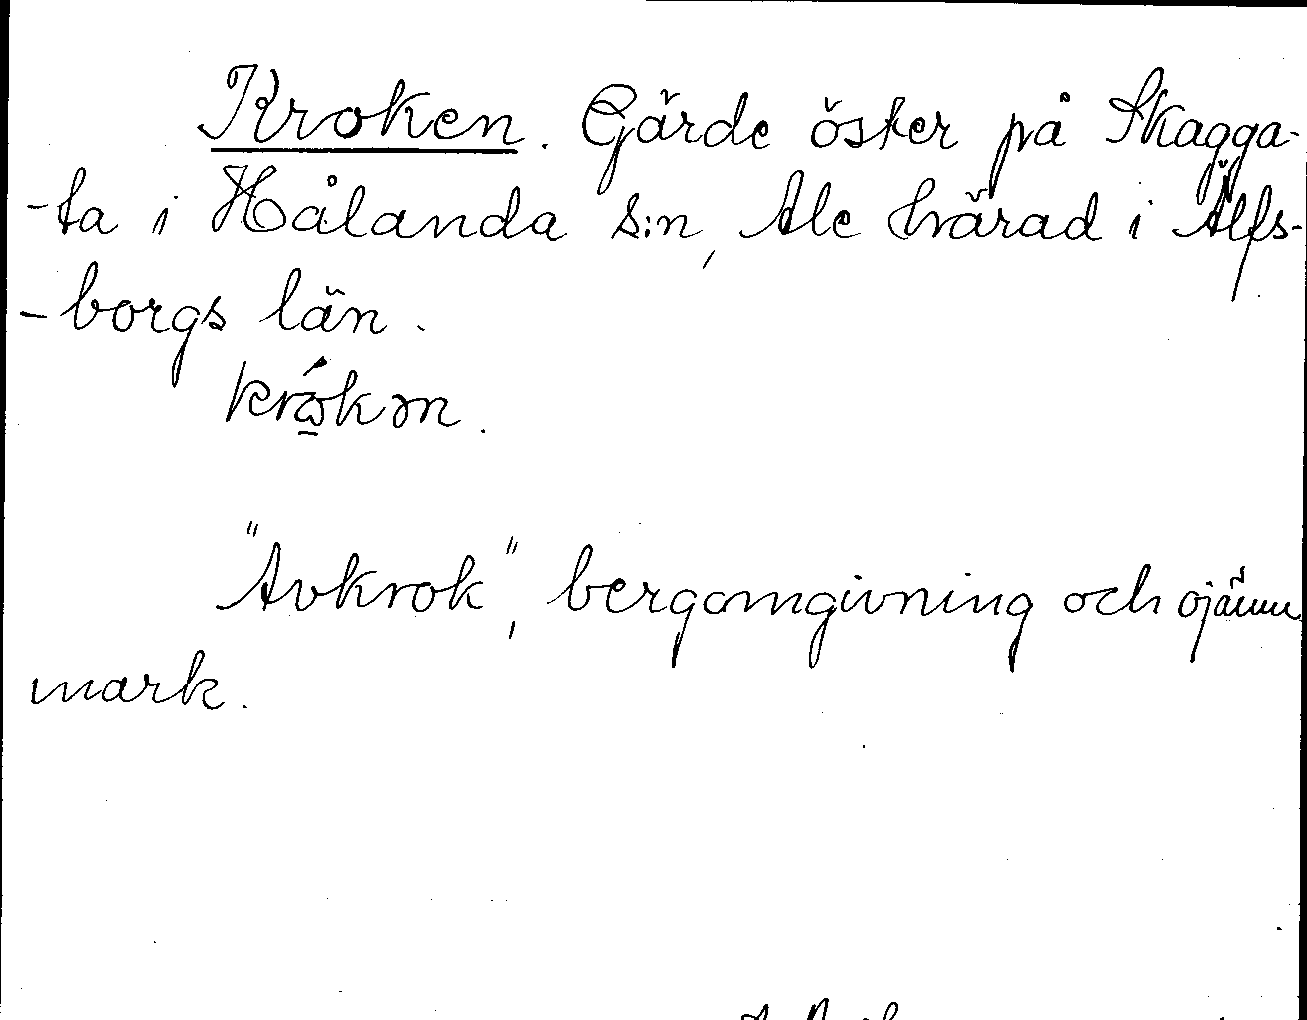 Kroken. Gärde öster på Skagga-
-ta i Hålanda s:n, Ale härad i Älfs-
-borgs län.
krώ̲kən.
"Avkrok", bergomgivning och ojämn
mark.